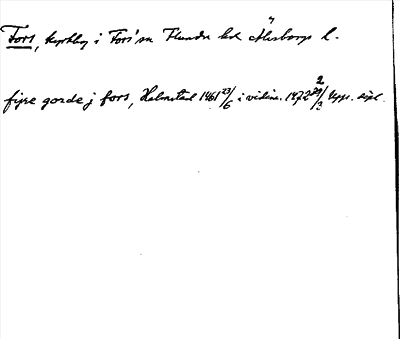 Fors, kyrkby i Fors sn Flundre hd Älvsborgs l.
fijre gorde j fors, Halmstad 1461 23/6 i vidim. 1472 29/2 Uppr. dipl.